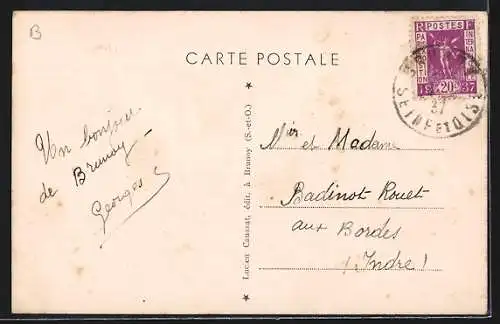 B
CARTE POSTALE
RF
POSTES
EXPOSITION
INTERNATIONALE
PARIS
20c
1937
37
SEINE ET OISE
Un bonjour
de Brunoy
Georges
Lucien Caussat, édit. à Brunoy (S.-et-O.)
Mr et Madame
Badinot Rouet
aux Bordes
(Indre)